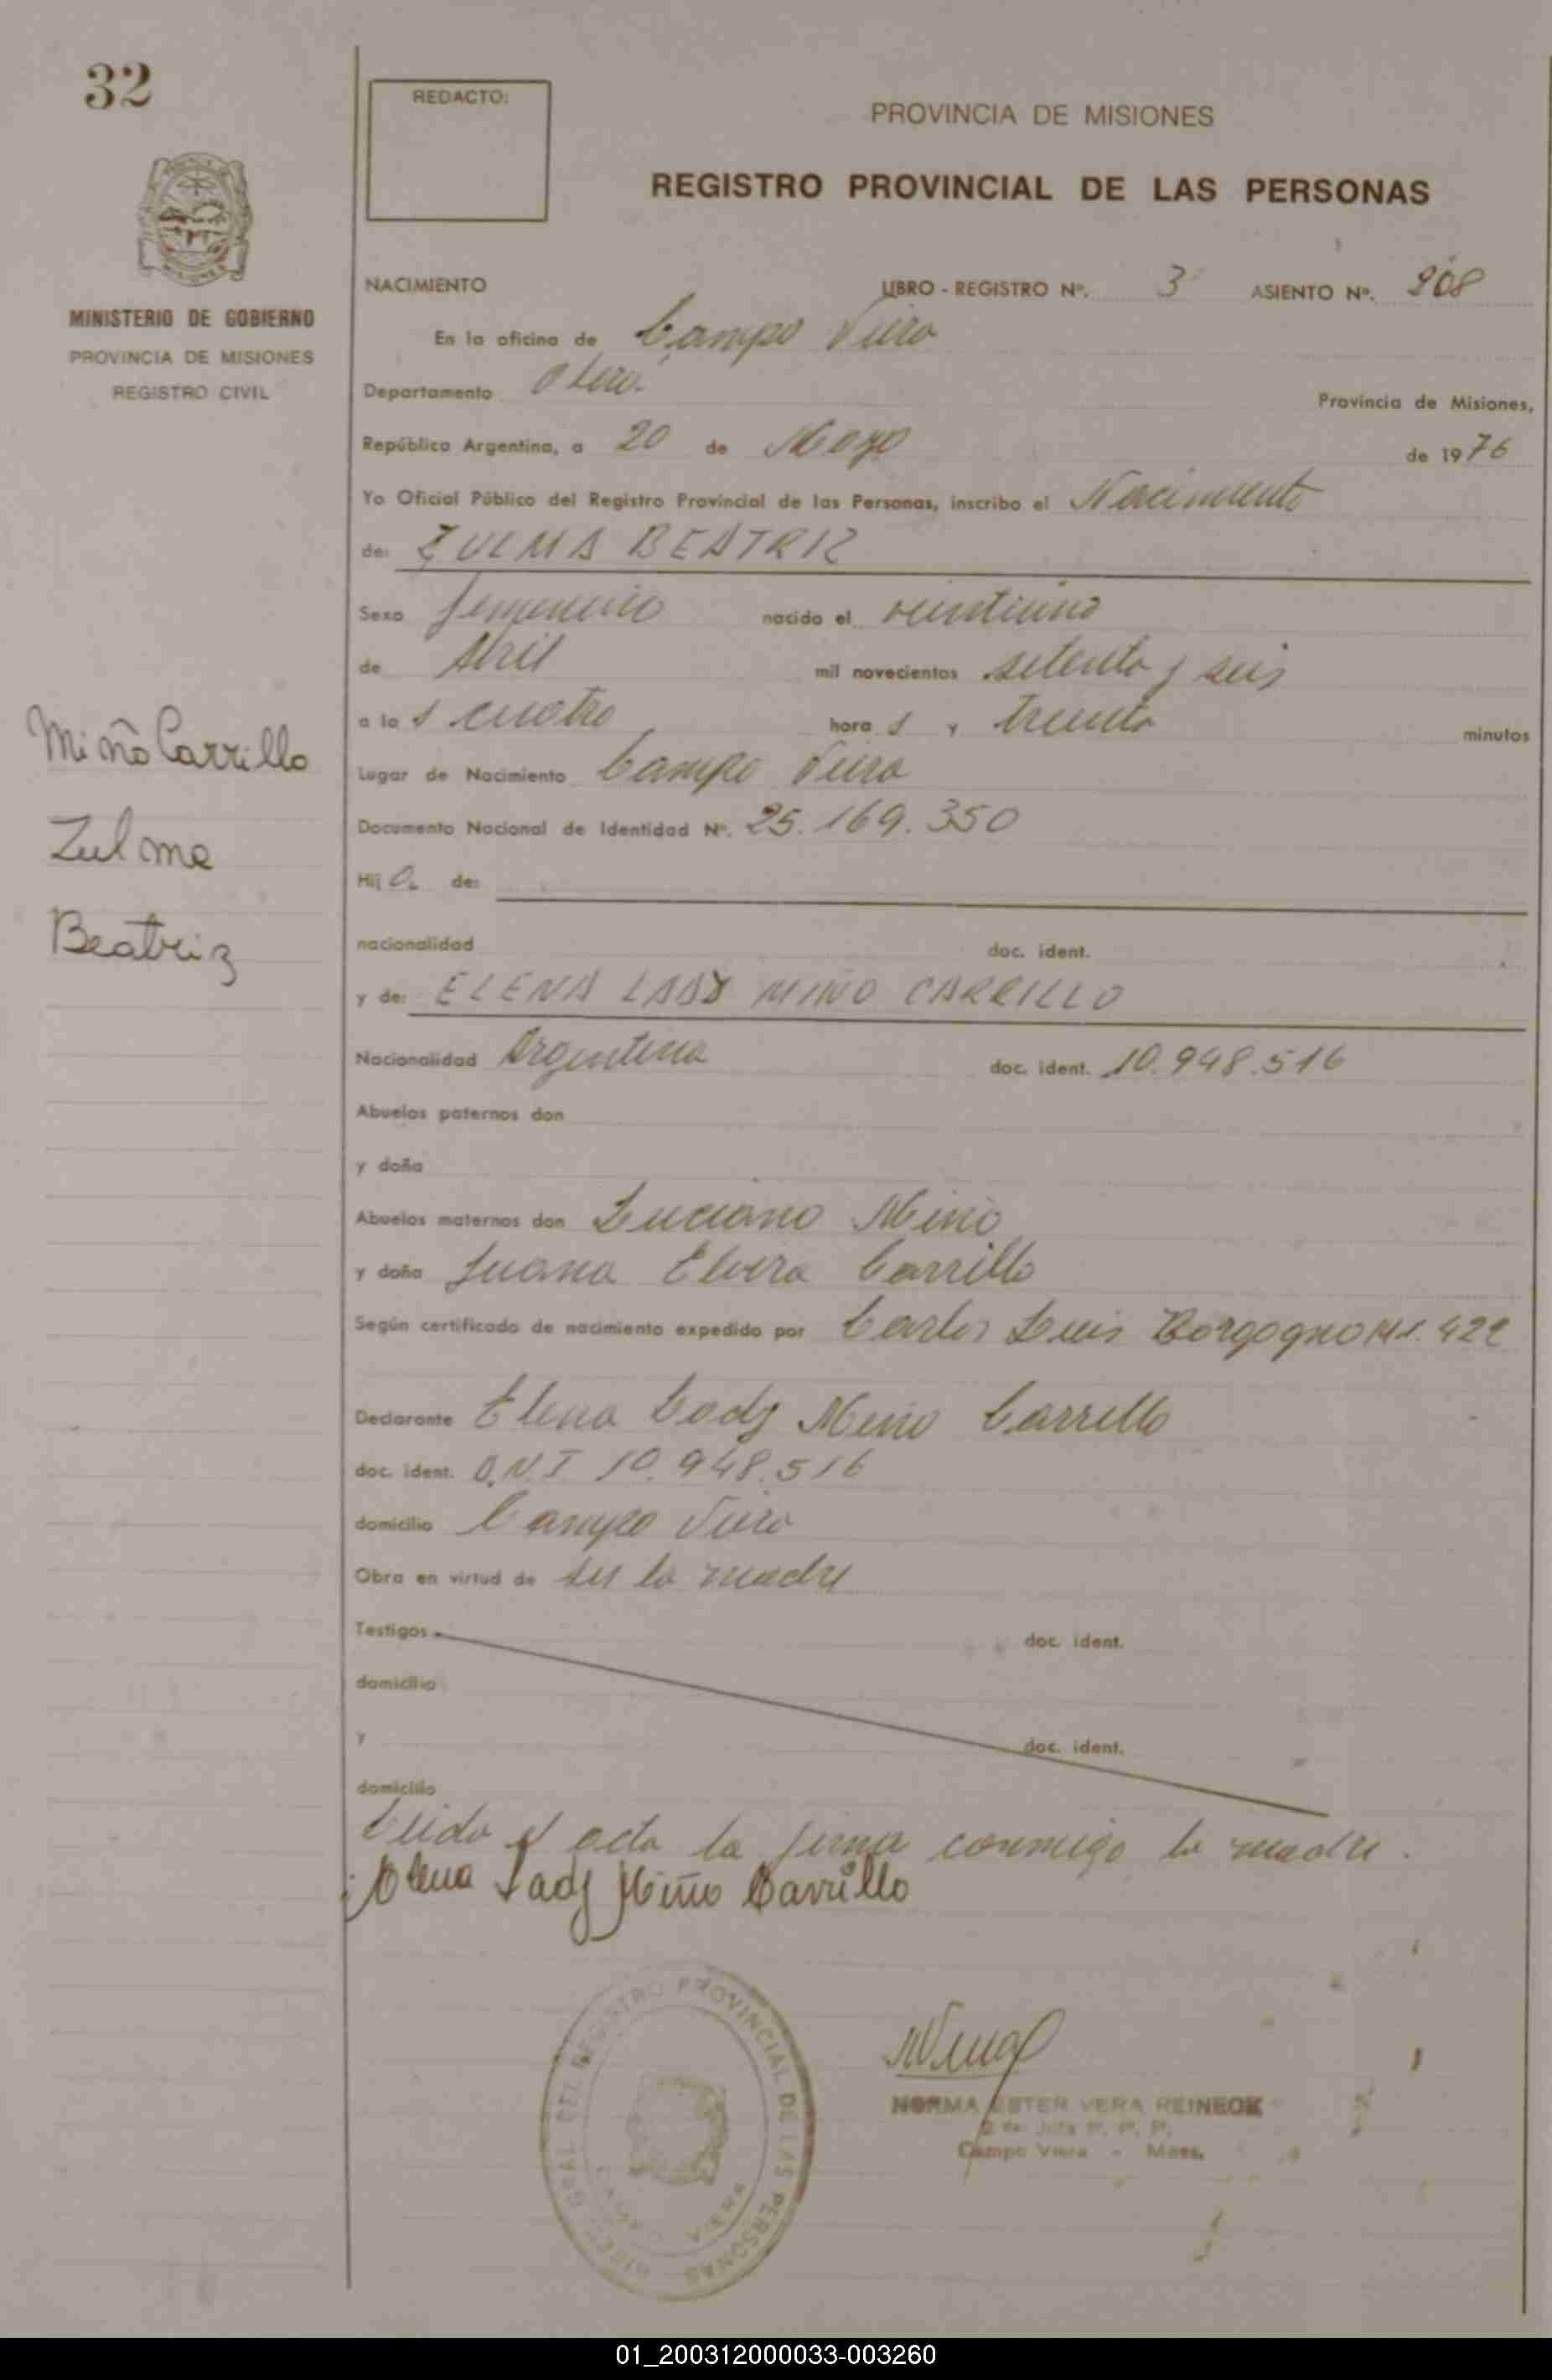 32
REDACTO:
PROVINCIA DE MISIONES
REGISTRO PROVINCIAL DE LAS PERSONAS
MINISTERIO DE GOBIERNO
PROVINCIA DE MISIONES
REGISTRO CIVIL
NACIMIENTO LIBRO - REGISTRO Nº. 3 ASIENTO Nº. 208
En la oficina de Campo Viera
Departamento Oberá Provincia de Misiones,
República Argentina, a 20 de Mayo de 1976
Yo Oficial Público del Registro Provincial de las Personas, inscribo el Nacimiento
de: ZULMA BEATRIZ
Sexo femenino nacido el veintiuno
de Abril mil novecientos setenta y seis
a las cuatro horas y treinta minutos
Lugar de Nacimiento Campo Viera
Documento Nacional de Identidad Nº. 25.169.350
Miño Carrillo
Zulma
Beatriz
Hija de:
nacionalidad doc. ident.
y de: ELENA LADY MIÑO CARRILLO
Nacionalidad Argentina doc. ident. 10.948.516
Abuelos paternos don
y doña
Abuelos maternos don Luciano Miño
y doña Juana Elvira Carrillo
Según certificado de nacimiento expedido por Carlos Luis Borgogno M.P. 422
Declarante Elena Lady Miño Carrillo
doc. ident. D.N.I 10.948.516
domicilio Campo Viera
Obra en virtud de ser la madre
Testigos doc. ident.
domicilio
y doc. ident.
domicilio
Leida el acta la firma conmigo la madre.
Elena Lady Miño Carrillo
DIREC. GRAL. DEL REGISTRO PROVINCIAL DE LAS PERSONAS
CAMPO VIERA
NORMA ESTER VERA REINECK
Campo Viera - Mnes.
01_200312000033-003260